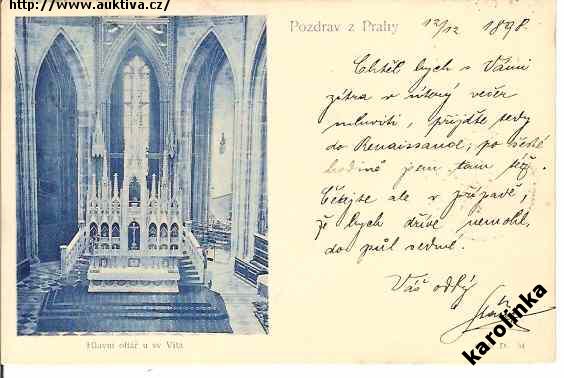 http://www.auktiva.cz/
Pozdrav z Prahy 12/12 1898.
Chtěl bych s Vámi
zítra v úterý večer
mluviti, přijďte tedy
do Renaissance; po šesté
hodině jsem tam též.
Čekejte ale v případě,
že bych dříve nemohl,
do půl sedmé.
Váš oddaný
Hlavní oltář u sv Víta
D. 34
karolinka